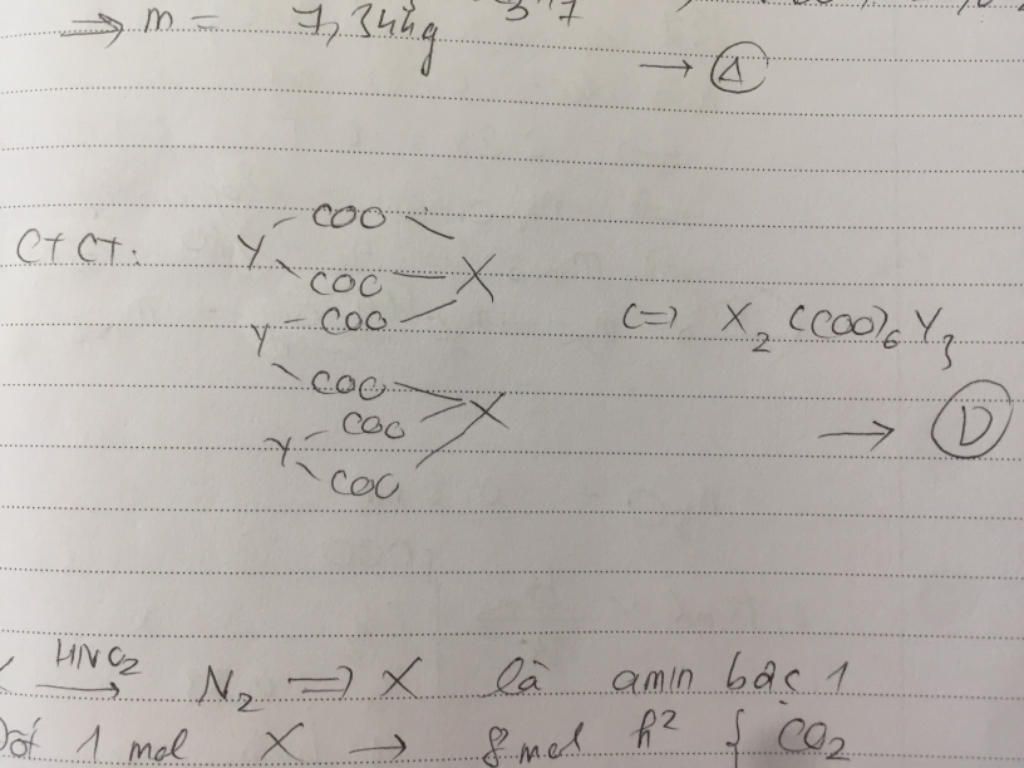 => m = 7,344g
→ A
CTCT: Y COO
COO X
Y COO
(=) X2 (COO)6 Y3
COO
COO X
→ D
Y COO
HNO2
→ N2 => X là amin bậc 1
Đốt 1 mol X → 8 mol h² { CO2